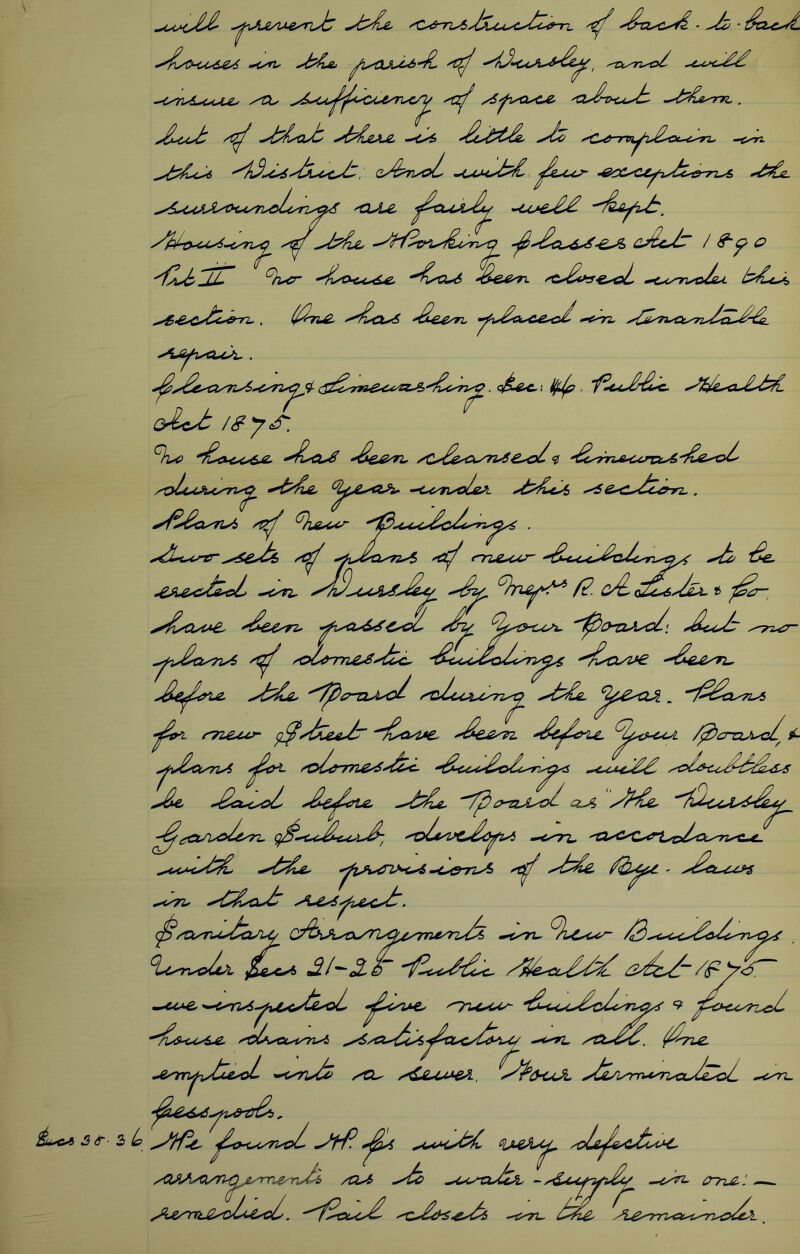 will prevent the construction of back-to-back
houses in the parish of Duursley, and will
insure a sufficiency of space about them.
but of that there is little to complain in
this District, and with few exceptions the
surroundings are fairly well kept.
Housing of the Working Classes Act 1890
Pt II No house has been closed under this
section. One has been placed in tenantable
repair.
Cleansing & Limewashing. Sec: 46. Public Health
Act 1875.
No house has been cleansed & limewashed
during the year under this section.
Plans of New Buildings.
Two sets of plans of new buildings to be
erected in Duursley by
have been passed by your Board: but no
plans of domestic buildings have been
before the Board during the year. Plans
for new Street have been before your Board, &
plans for domestic buildings will doubtless
be laid before the Board as "The Duursley
Garden Suburb, develops in accordance
with the provisions of the Bye-laws
in that respect.
Sanitary Arrangements in New Buildings.
Under Secs 21-25 Public Health Act 1875
we inspected five new buildings & found
house drains satisfactory in all. One
emptied into a sewer, Four terminated in
Cesspools.
Secs 35-36 We found W.Cs with very defective
arrangements as to water-supply in one:—
remedied. Pail closets in the remainder.